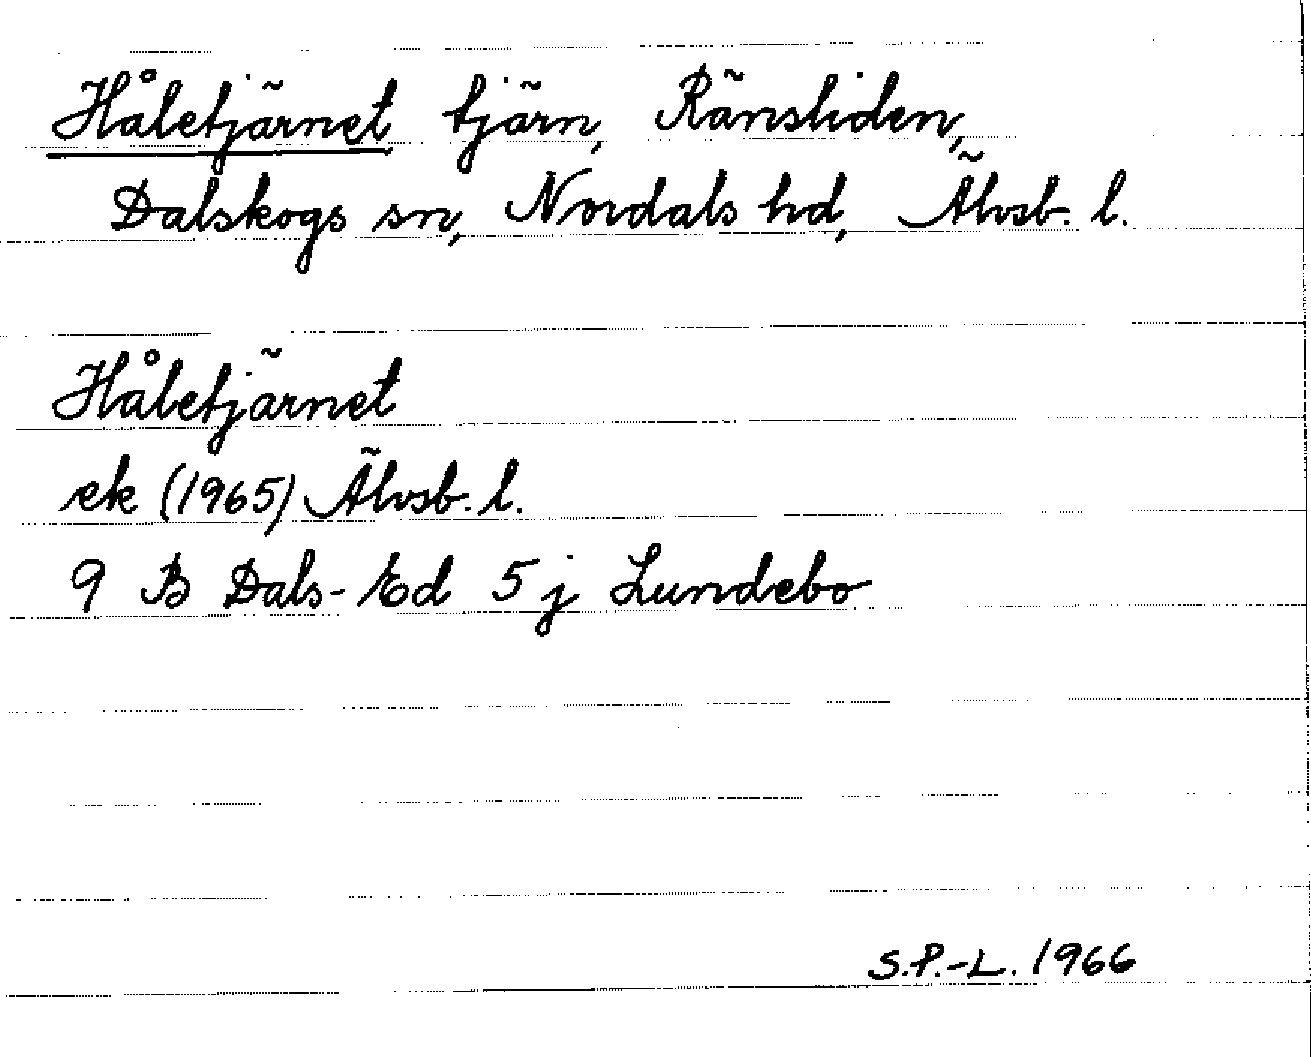 Håletjärnet tjärn, Ränsliden,
Dalskogs sn, Nordals hd, Älvsb. l.
Håletjärnet
ek (1965) Älvsb. l.
9 B Dals-Ed 5 j Lundebo
S.P.-L. 1966